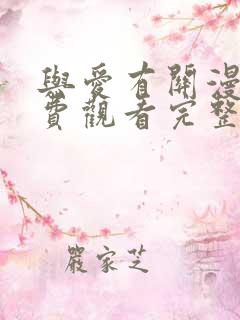 與愛有關漫
費觀看完整
嚴家芝